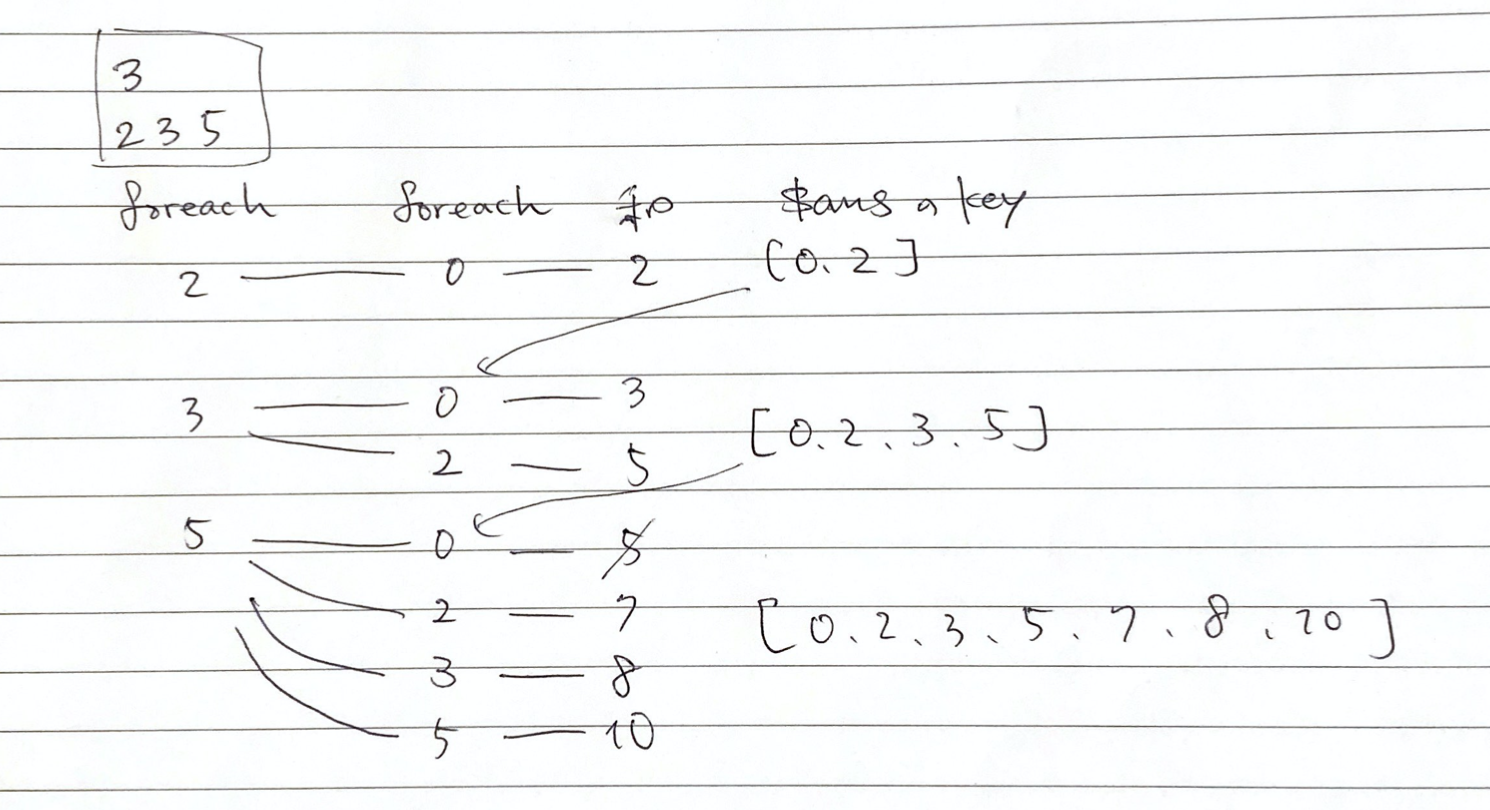 3
2 3 5
foreach foreach $ans の key
2 0 2 [0、2]
3 0 3
2 5 [0、2、3、5]
5 0 5
2 7 [0、2、3、5、7、8、10]
3 8
5 10